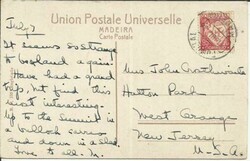 Union Postale Universelle
MADEIRA
Carte Postale
July 7
It seems so strange
to be on land again.
Have had a grand
trip, but find this
most interesting.
Up to the summit in
a bullock
and down in a sled.
Love to all. N.
Mrs John
Hutton Park
West Orange
New Jersey
U.S.A.